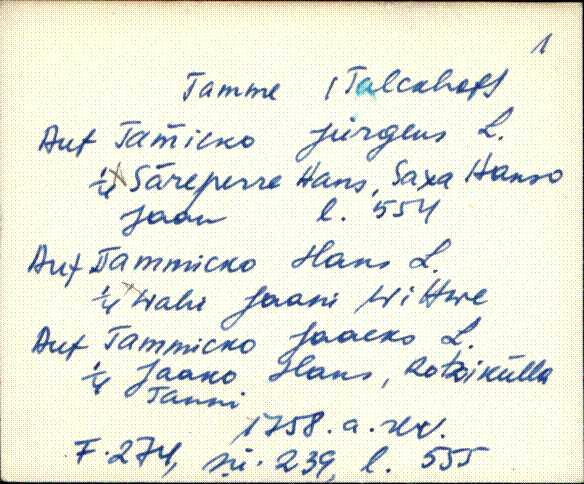 1
Tamme (Talckhoff
Auf Tam̄icko Jürgens L.
1/4 Säreperre Hans, Saxa Hanso
Jaan l. 554
Auf Tammicko Hans L.
1/4 Wahi Jaani Wittwe
Auf Tammicko Jaacko L.
1/4 Jaako Hans, Rotzikülla
Tanni
1758. a. rev.
F. 274, nü. 239, l. 555